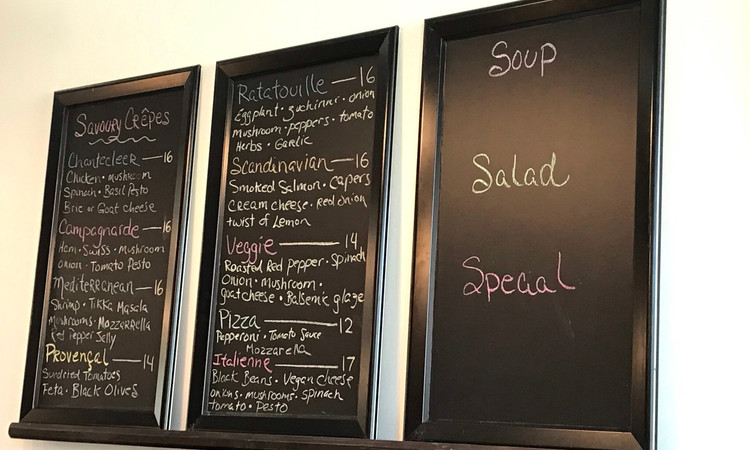 Savoury Crêpes
Chantecleer — 16
Chicken · mushroom
Spinach · Basil Pesto
Brie or Goat cheese
Campagnarde — 16
Ham · Swiss · Mushroom
onion · Tomato Pesto
Mediterranean — 16
Shrimp · Tikka Masala
Mushrooms · Mozzarella
Red Pepper Jelly
Provençal — 14
Sundried Tomatoes
Feta · Black Olives
Ratatouille — 16
Eggplant · zuchinni · onion
mushroom · peppers · tomato
Herbs · Garlic
Scandinavian — 16
Smoked Salmon · Capers
Cream cheese · Red onion
twist of Lemon
Veggie — 14
Roasted Red pepper · Spinach
Onion · mushroom ·
goat cheese · Balsemic glaze
Pizza — 12
Pepperoni · Tomato Sauce
Mozzarella
Italienne — 17
Black Beans · Vegan cheese
onions · mushrooms · spinach
tomato · Pesto
Soup
Salad
Special